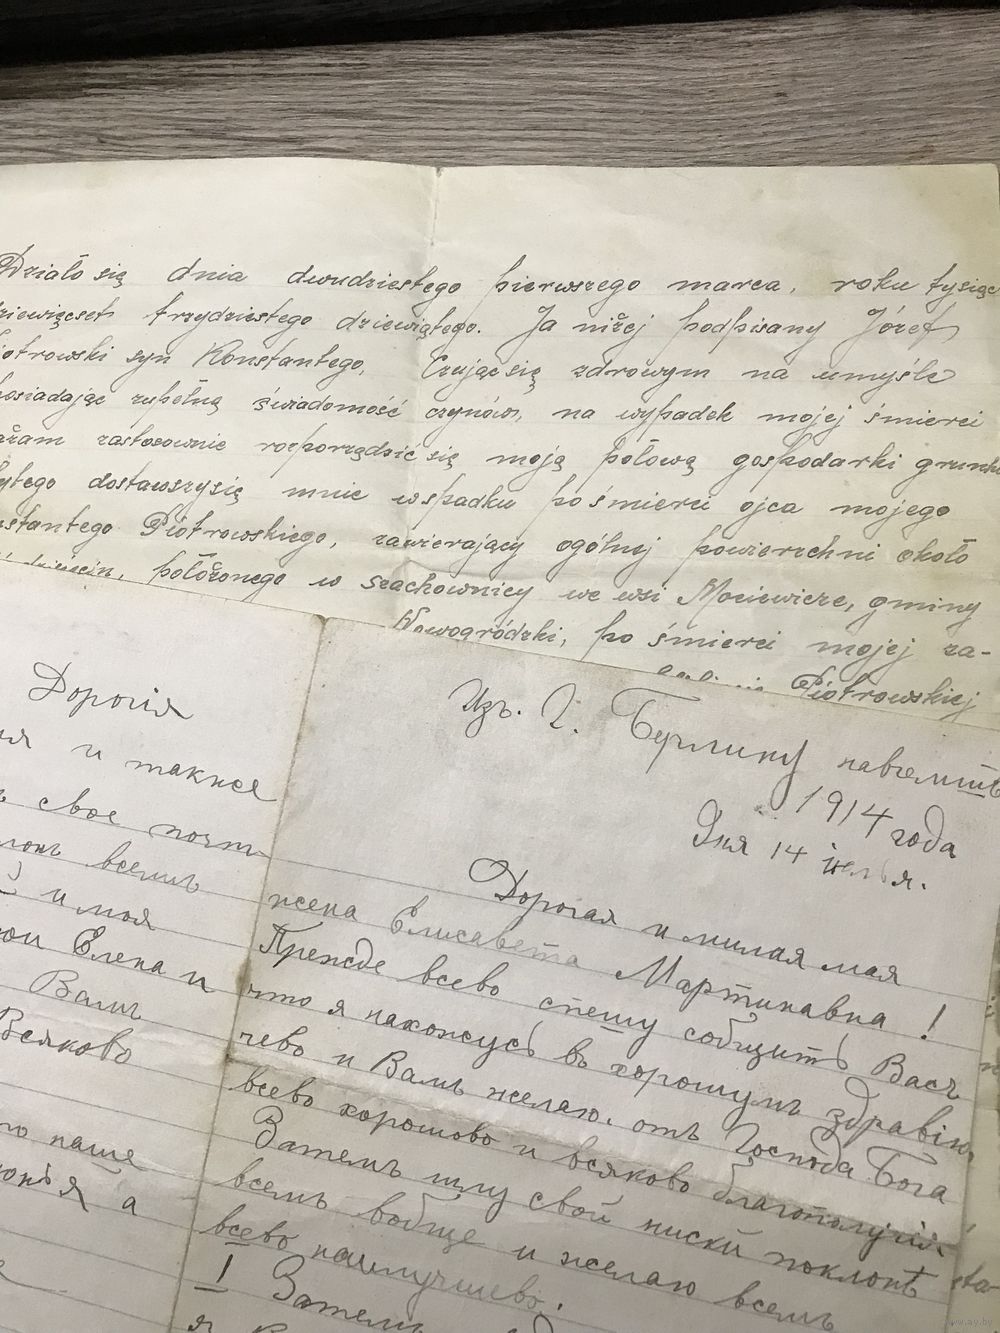 Działo się dnia dwudziestego pierwszego marca, roku tysiąc
dziewięćset trzydziestego dziewiątego. Ja niżej podpisany Józef
Piotrowski syn Konstantego, Czując się zdrowym na umyśle
posiadając zupełną świadomość czynów, na wypadek mojej śmierci
zastosownie rozporządzić się moją połową gospodarki
dostawszysię mnie wspadku po śmierci ojca mojego
Konstantego Piotrowskiego, zawierający ogólnej powierzchni około
położonego w szachownicy we wsi Mociewicze, gminy
Nowogródzki, po śmierci mojej za-
Piotrowskiej
Дорогія
и также
свое почт
всемъ
и моя
Елена и
Вамъ
Всяково
наше
а
Изъ. Г.
1914 года
Дня 14
Дорогая и милая мая
жена Елисавета Мартинавна !
Прежде всево спешу собщить Васъ
что я нахожусь въ хорошумъ здравію,
чево и Вамъ желаю. отъ Господа Бога
всево хорошово и всяково благополучія
Затемъ шлу свой ниски поклонъ
всемъ вобще и желаю всемъ
всево наилучшево.
1 Затемъ
www.ay.by